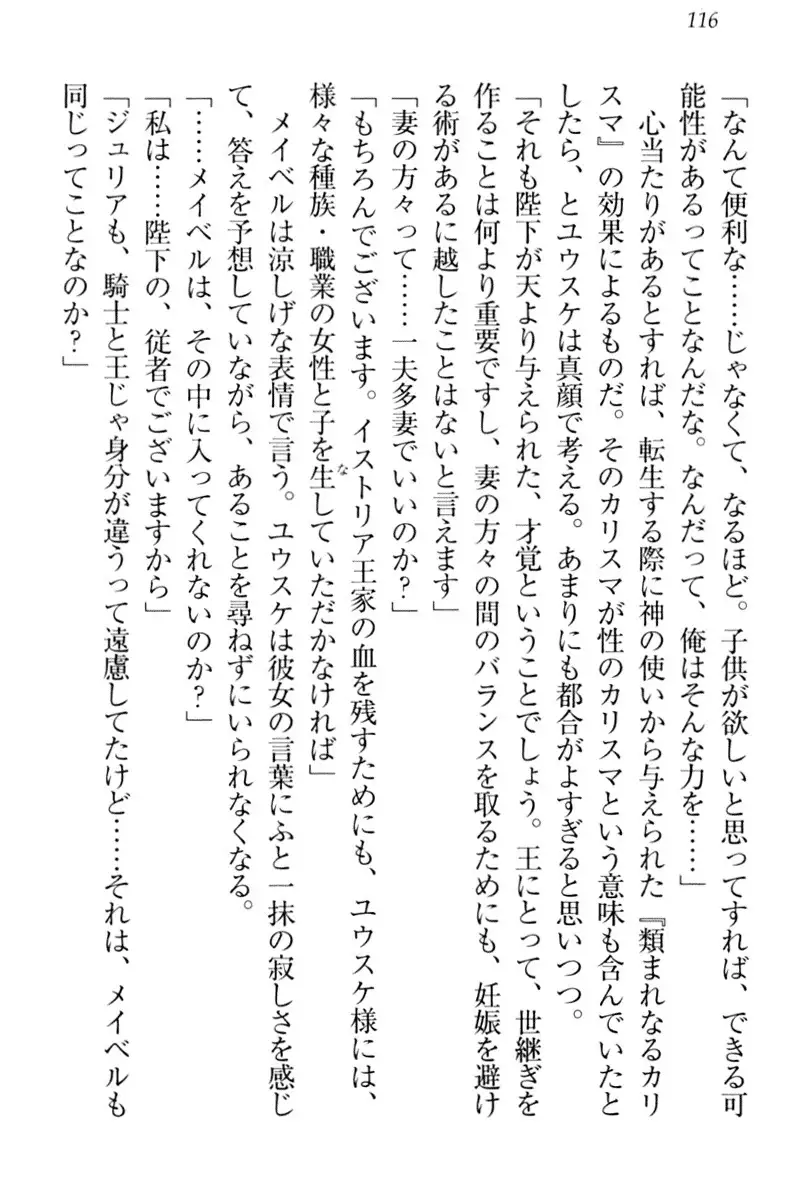 116
「なんて便利な……じゃなくて、なるほど。子供が欲しいと思ってすれば、できる可
能性があるってことなんだな。なんだって、俺はそんな力を……」
　心当たりがあるとすれば、転生する際に神の使いから与えられた『類まれなるカリ
スマ』の効果によるものだ。そのカリスマが性のカリスマという意味も含んでいたと
したら、とユウスケは真顔で考える。あまりにも都合がよすぎると思いつつ。
「それも陛下が天より与えられた、才覚ということでしょう。王にとって、世継ぎを
作ることは何より重要ですし、妻の方々の間のバランスを取るためにも、妊娠を避け
る術があるに越したことはないと言えます」
「妻の方々って……一夫多妻でいいのか？」
「もちろんでございます。イストリア王家の血を残すためにも、ユウスケ様には、
様々な種族・職業の女性と子を生していただかなければ」
　メイベルは涼しげな表情で言う。ユウスケは彼女の言葉にふと一抹の寂しさを感じ
て、答えを予想していながら、あることを尋ねずにいられなくなる。
「……メイベルは、その中に入ってくれないのか？」
「私は……陛下の、従者でございますから」
「ジュリアも、騎士と王じゃ身分が違うって遠慮してたけど……それは、メイベルも
同じってことなのか？」
な